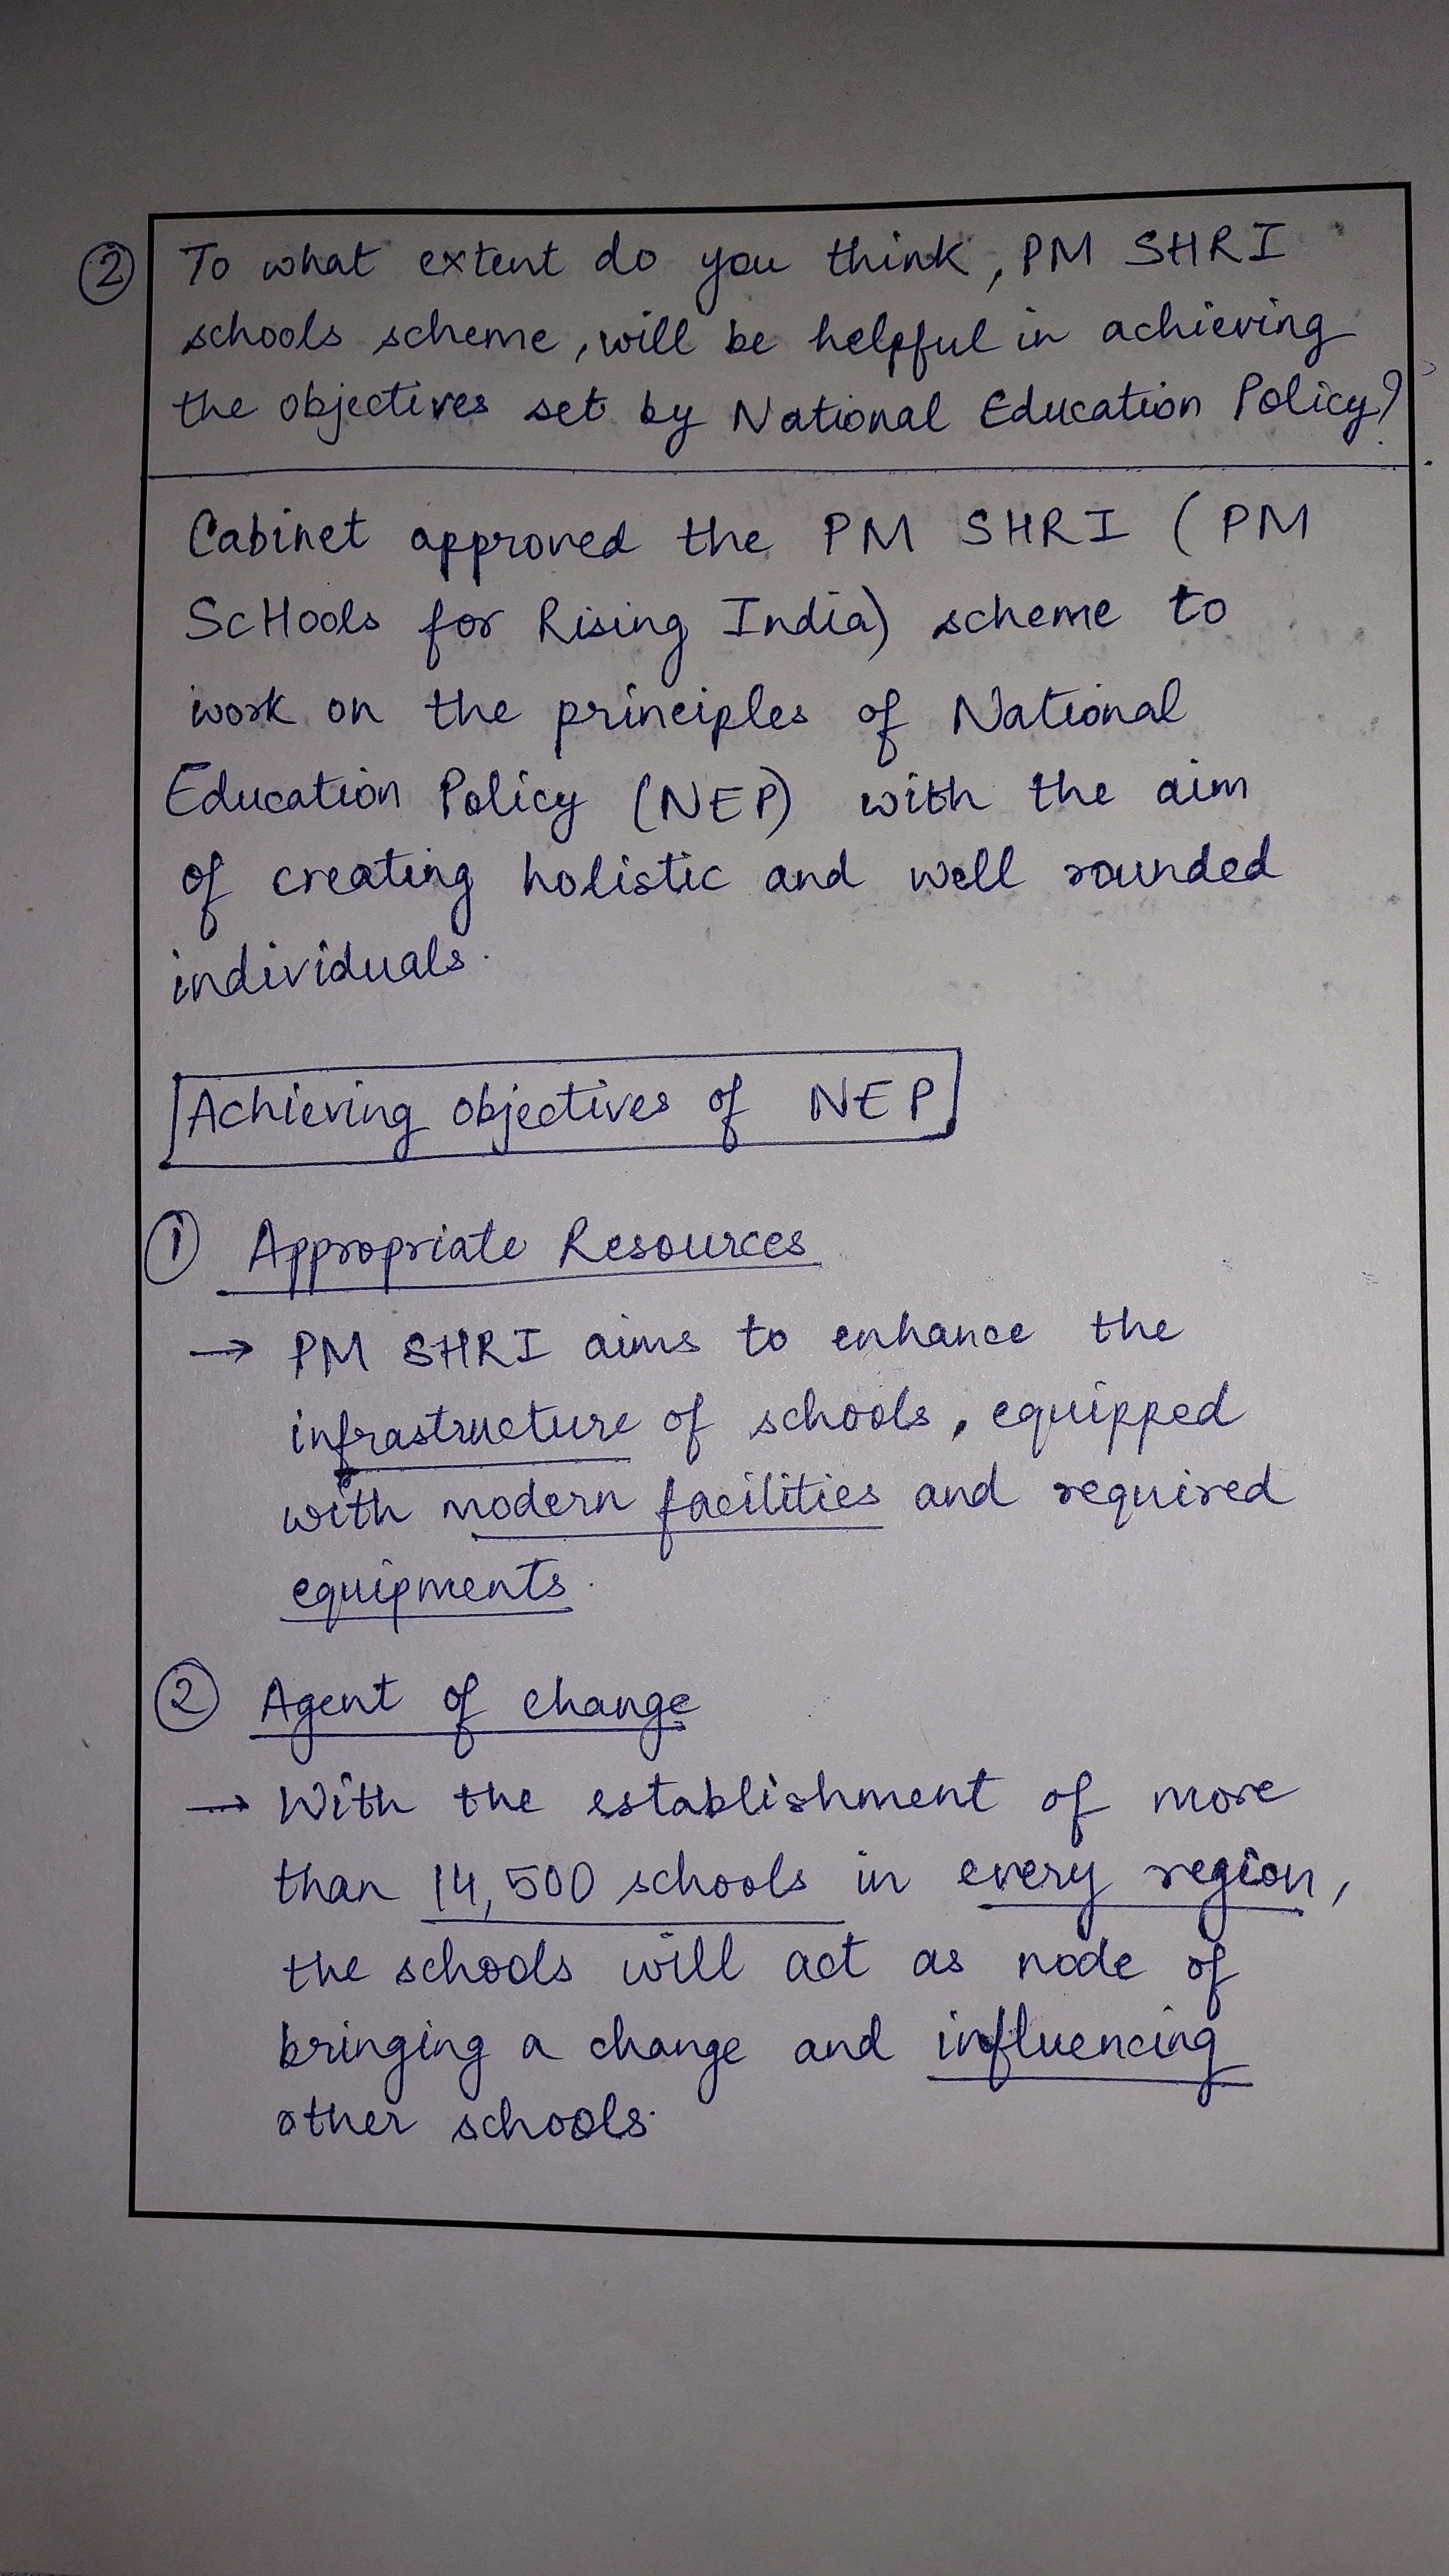 ② To what extent do you think, PM SHRI
schools scheme, will be helpful in achieving
the objectives set by National Education Policy?
Cabinet approved the PM SHRI (PM
ScHools for Rising India) scheme to
work on the principles of National
Education Policy (NEP) with the aim
of creating holistic and well rounded
individuals.
Achieving objectives of NEP
① Appropriate Resources
→ PM SHRI aims to enhance the
infrastructure of schools, equipped
with modern facilities and required
equipments.
② Agent of change
→ With the establishment of more
than 14,500 schools in every region,
the schools will act as node of
bringing a change and influencing
other schools.